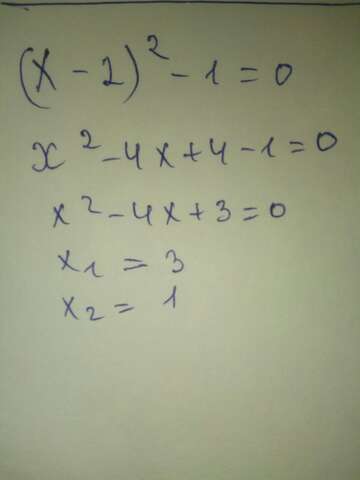 (x - 2)² - 1 = 0
x² - 4x + 4 - 1 = 0
x² - 4x + 3 = 0
x₁ = 3
x₂ = 1